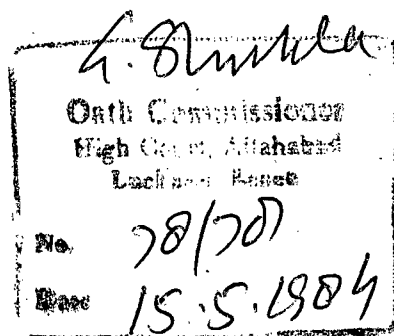 G. Shukla
Oath Commissioner
High Court, Allahabad
Lucknow Bench
No. 78/781
Date 15.5.1984